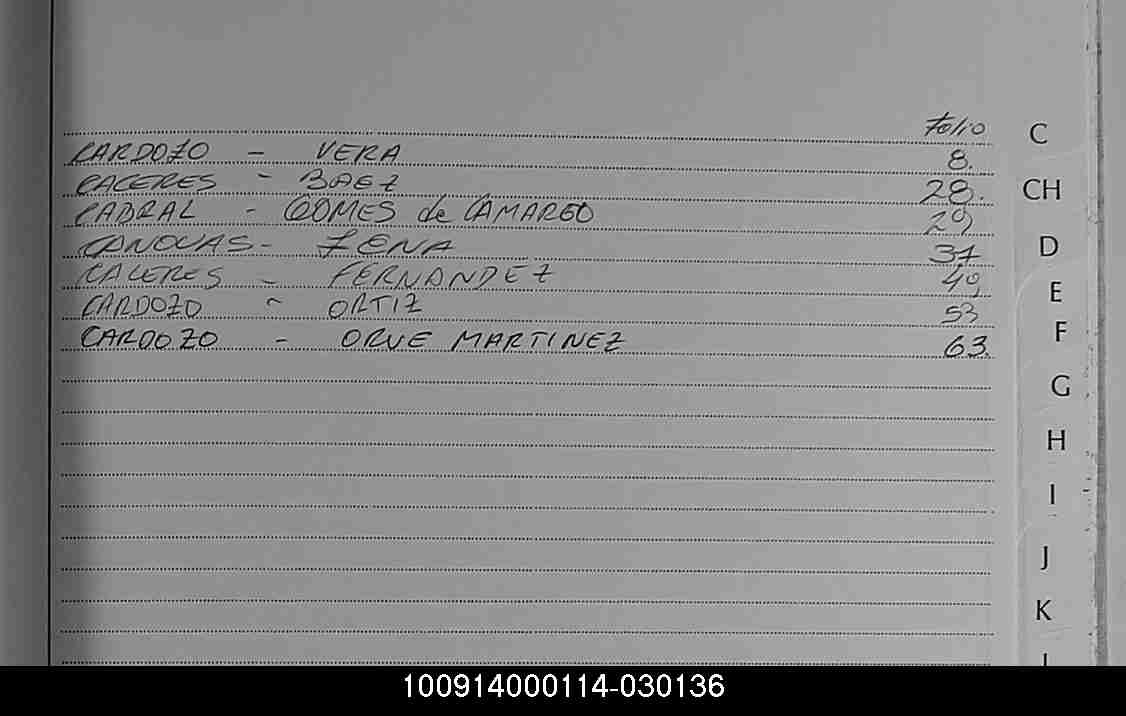 Folio
CARDOZO - VERA 8.
CACERES - BAEZ 28.
CABRAL - GOMES de CAMARGO 29
CANOVAS - ZENA 37
CACERES - FERNANDEZ 49
CARDOZO - ORTIZ 53
CARDOZO - ORUE MARTINEZ 63.
C
CH
D
E
F
G
H
I
J
K
100914000114-030136